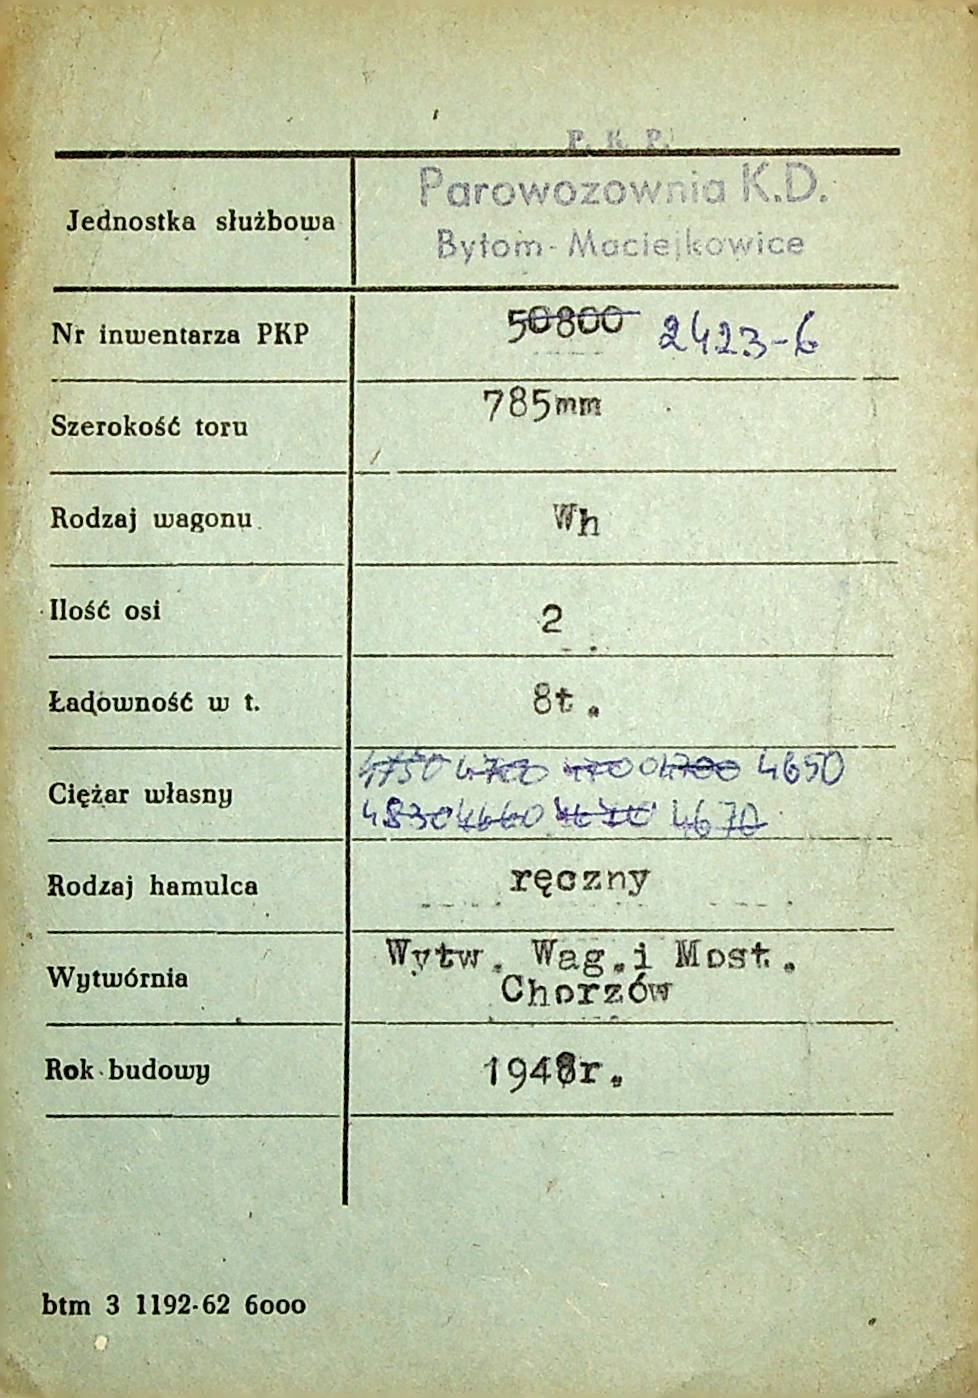 P. K. P.
Parowozownia K.D.
Jednostka służbowa
Bytom-Maciejkowice
Nr inwentarza PKP 50800 2423-6
Szerokość toru 785mm
Rodzaj wagonu Wh
Ilość osi 2
Ładowność w t. 8t.
4750 4700 4700 4700 4650
Ciężar własny
4830 4660 4670
Rodzaj hamulca ręczny
Wytw. Wag. i Most.
Wytwórnia
Chorzów
Rok budowy 1948r.
btm 3 1192-62 6000